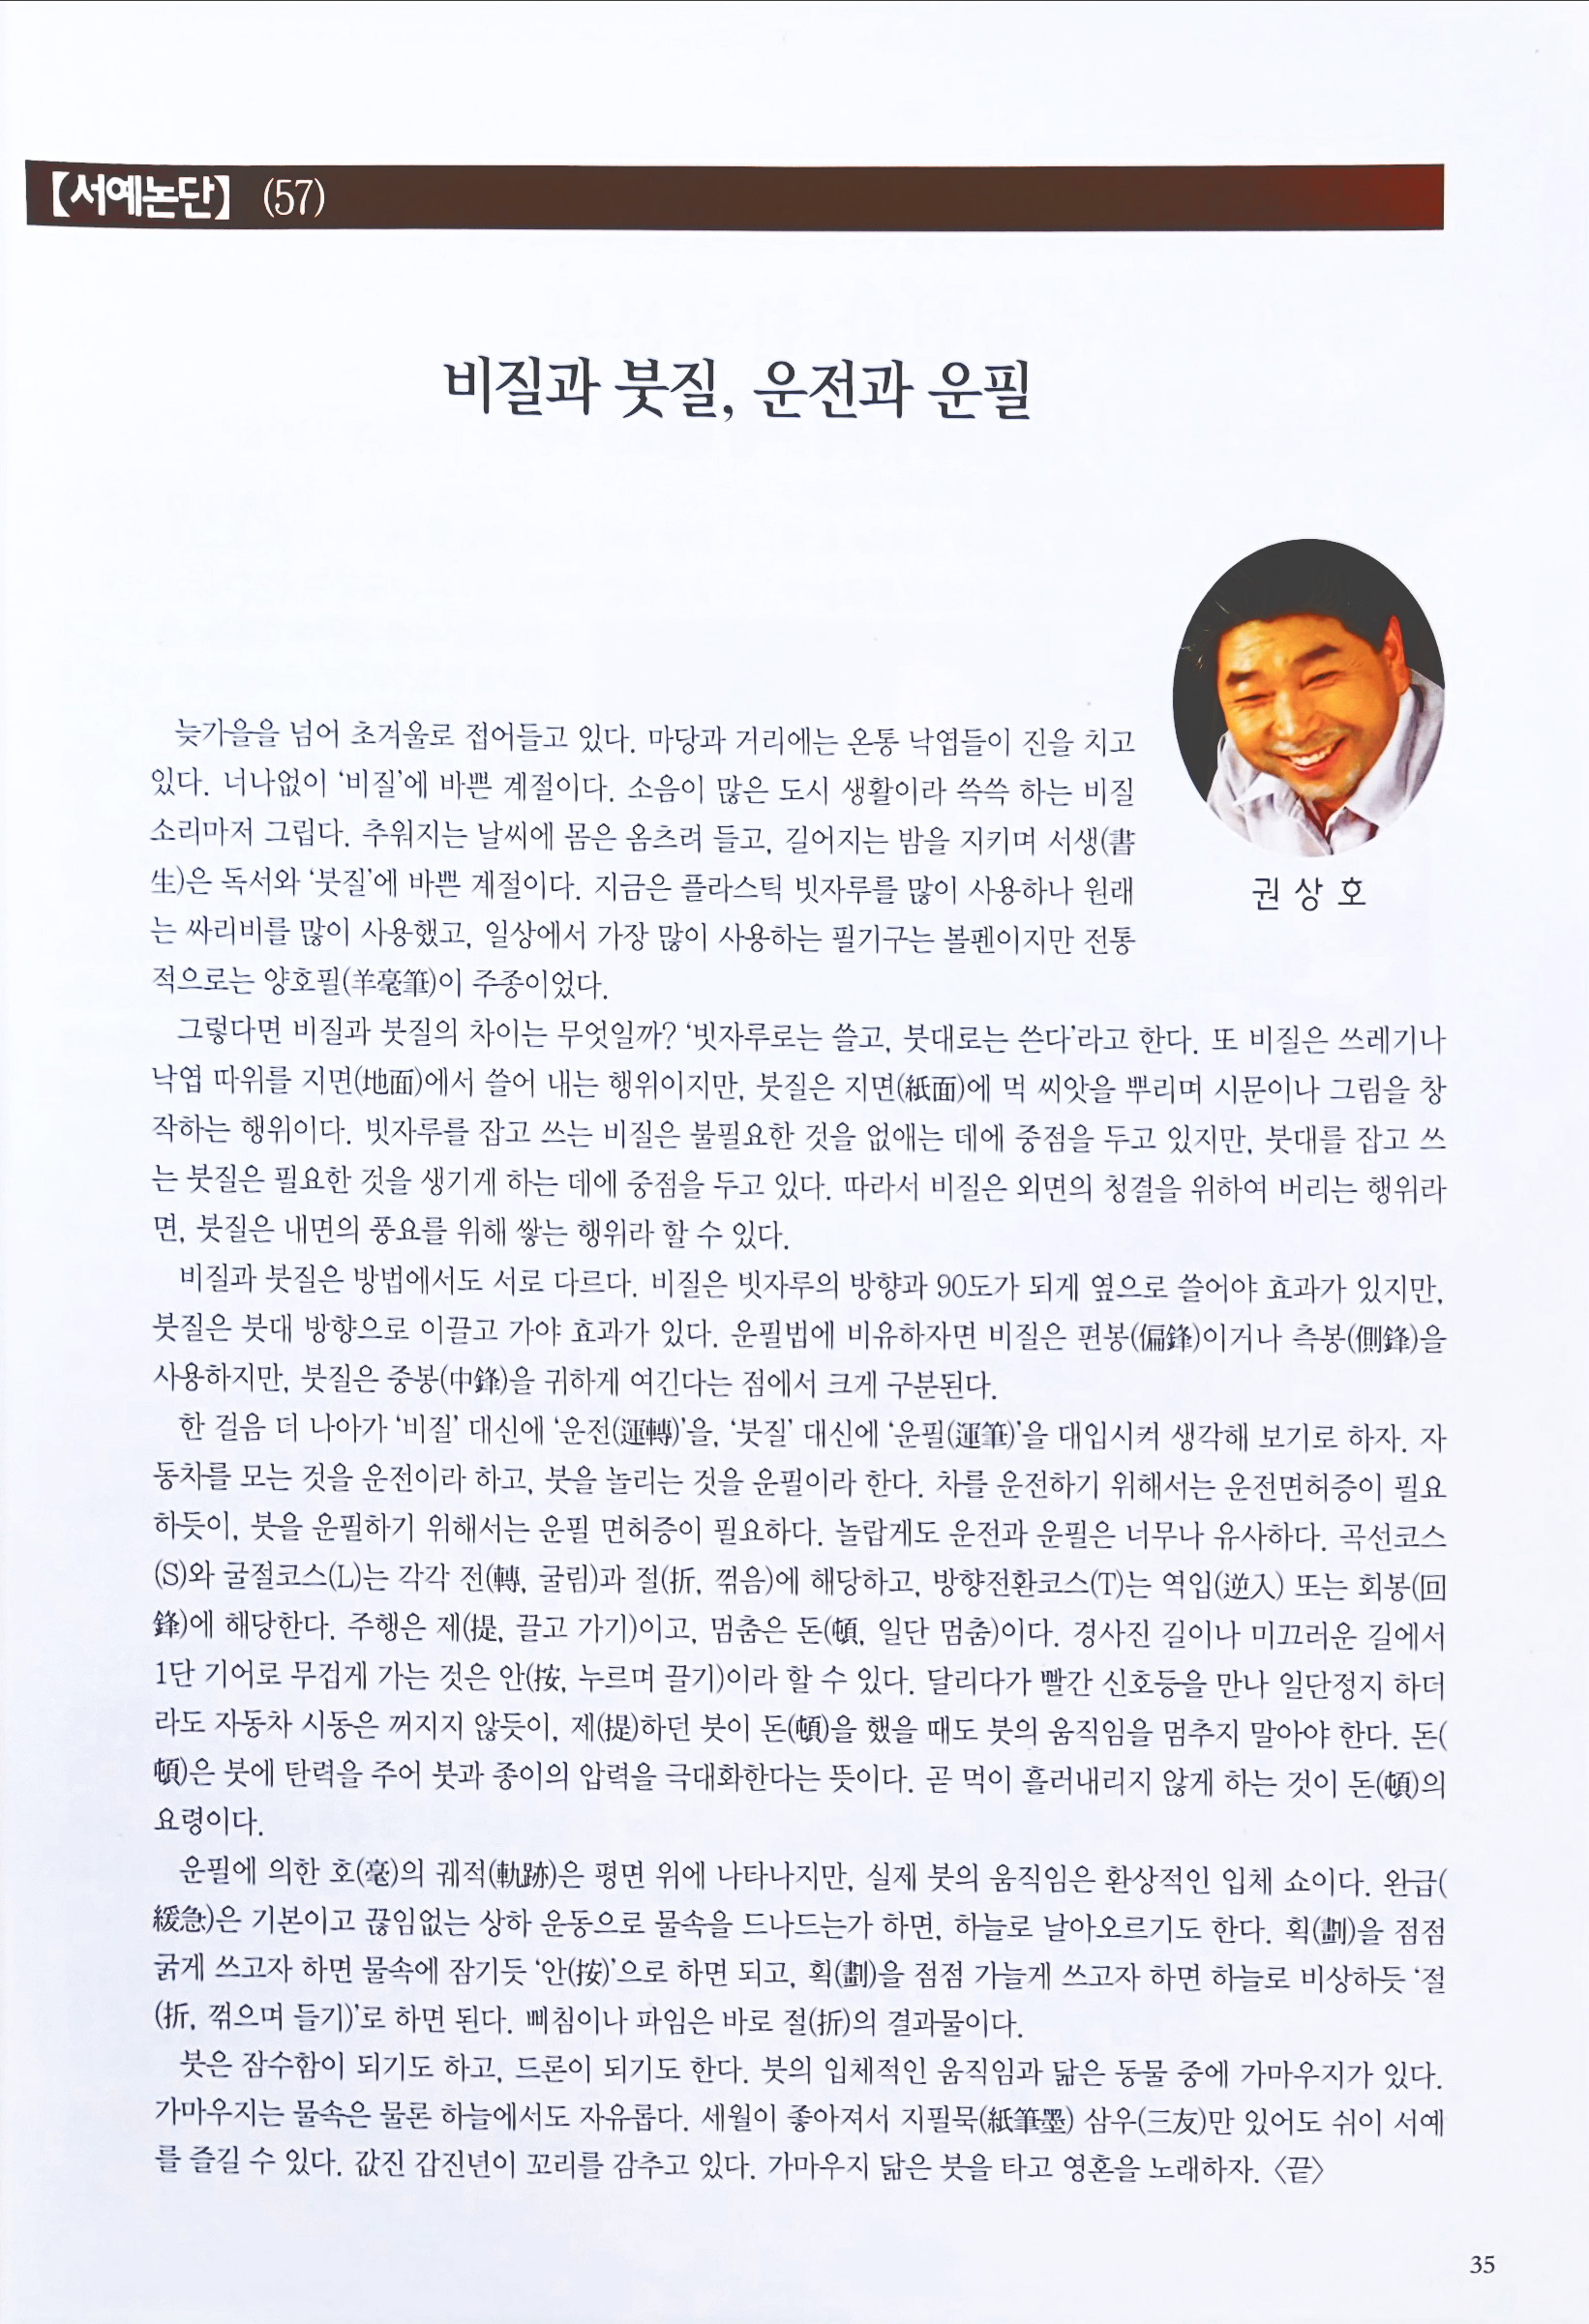 【서예논단】 (57)
비질과 붓질, 운전과 운필
권 상 호
늦가을을 넘어 초겨울로 접어들고 있다. 마당과 거리에는 온통 낙엽들이 진을 치고
있다. 너나없이 ‘비질’에 바쁜 계절이다. 소음이 많은 도시 생활이라 쓱쓱 하는 비질
소리마저 그립다. 추워지는 날씨에 몸은 옴츠려 들고, 길어지는 밤을 지키며 서생(書
生)은 독서와 ‘붓질’에 바쁜 계절이다. 지금은 플라스틱 빗자루를 많이 사용하나 원래
는 싸리비를 많이 사용했고, 일상에서 가장 많이 사용하는 필기구는 볼펜이지만 전통
적으로는 양호필(羊毫筆)이 주종이었다.
그렇다면 비질과 붓질의 차이는 무엇일까? ‘빗자루로는 쓸고, 붓대로는 쓴다’라고 한다. 또 비질은 쓰레기나
낙엽 따위를 지면(地面)에서 쓸어 내는 행위이지만, 붓질은 지면(紙面)에 먹 씨앗을 뿌리며 시문이나 그림을 창
작하는 행위이다. 빗자루를 잡고 쓰는 비질은 불필요한 것을 없애는 데에 중점을 두고 있지만, 붓대를 잡고 쓰
는 붓질은 필요한 것을 생기게 하는 데에 중점을 두고 있다. 따라서 비질은 외면의 청결을 위하여 버리는 행위라
면, 붓질은 내면의 풍요를 위해 쌓는 행위라 할 수 있다.
비질과 붓질은 방법에서도 서로 다르다. 비질은 빗자루의 방향과 90도가 되게 옆으로 쓸어야 효과가 있지만,
붓질은 붓대 방향으로 이끌고 가야 효과가 있다. 운필법에 비유하자면 비질은 편봉(偏鋒)이거나 측봉(側鋒)을
사용하지만, 붓질은 중봉(中鋒)을 귀하게 여긴다는 점에서 크게 구분된다.
한 걸음 더 나아가 ‘비질’ 대신에 ‘운전(運轉)’을, ‘붓질’ 대신에 ‘운필(運筆)’을 대입시켜 생각해 보기로 하자. 자
동차를 모는 것을 운전이라 하고, 붓을 놀리는 것을 운필이라 한다. 차를 운전하기 위해서는 운전면허증이 필요
하듯이, 붓을 운필하기 위해서는 운필 면허증이 필요하다. 놀랍게도 운전과 운필은 너무나 유사하다. 곡선코스
(S)와 굴절코스(L)는 각각 전(轉, 굴림)과 절(折, 꺾음)에 해당하고, 방향전환코스(T)는 역입(逆入) 또는 회봉(回
鋒)에 해당한다. 주행은 제(提, 끌고 가기)이고, 멈춤은 돈(頓, 일단 멈춤)이다. 경사진 길이나 미끄러운 길에서
1단 기어로 무겁게 가는 것은 안(按, 누르며 끌기)이라 할 수 있다. 달리다가 빨간 신호등을 만나 일단정지 하더
라도 자동차 시동은 꺼지지 않듯이, 제(提)하던 붓이 돈(頓)을 했을 때도 붓의 움직임을 멈추지 말아야 한다. 돈(
頓)은 붓에 탄력을 주어 붓과 종이의 압력을 극대화한다는 뜻이다. 곧 먹이 흘러내리지 않게 하는 것이 돈(頓)의
요령이다.
운필에 의한 호(毫)의 궤적(軌跡)은 평면 위에 나타나지만, 실제 붓의 움직임은 환상적인 입체 쇼이다. 완급(
緩急)은 기본이고 끊임없는 상하 운동으로 물속을 드나드는가 하면, 하늘로 날아오르기도 한다. 획(劃)을 점점
굵게 쓰고자 하면 물속에 잠기듯 ‘안(按)’으로 하면 되고, 획(劃)을 점점 가늘게 쓰고자 하면 하늘로 비상하듯 ‘절
(折, 꺾으며 들기)’로 하면 된다. 삐침이나 파임은 바로 절(折)의 결과물이다.
붓은 잠수함이 되기도 하고, 드론이 되기도 한다. 붓의 입체적인 움직임과 닮은 동물 중에 가마우지가 있다.
가마우지는 물속은 물론 하늘에서도 자유롭다. 세월이 좋아져서 지필묵(紙筆墨) 삼우(三友)만 있어도 쉬이 서예
를 즐길 수 있다. 값진 갑진년이 꼬리를 감추고 있다. 가마우지 닮은 붓을 타고 영혼을 노래하자. 〈끝〉
35